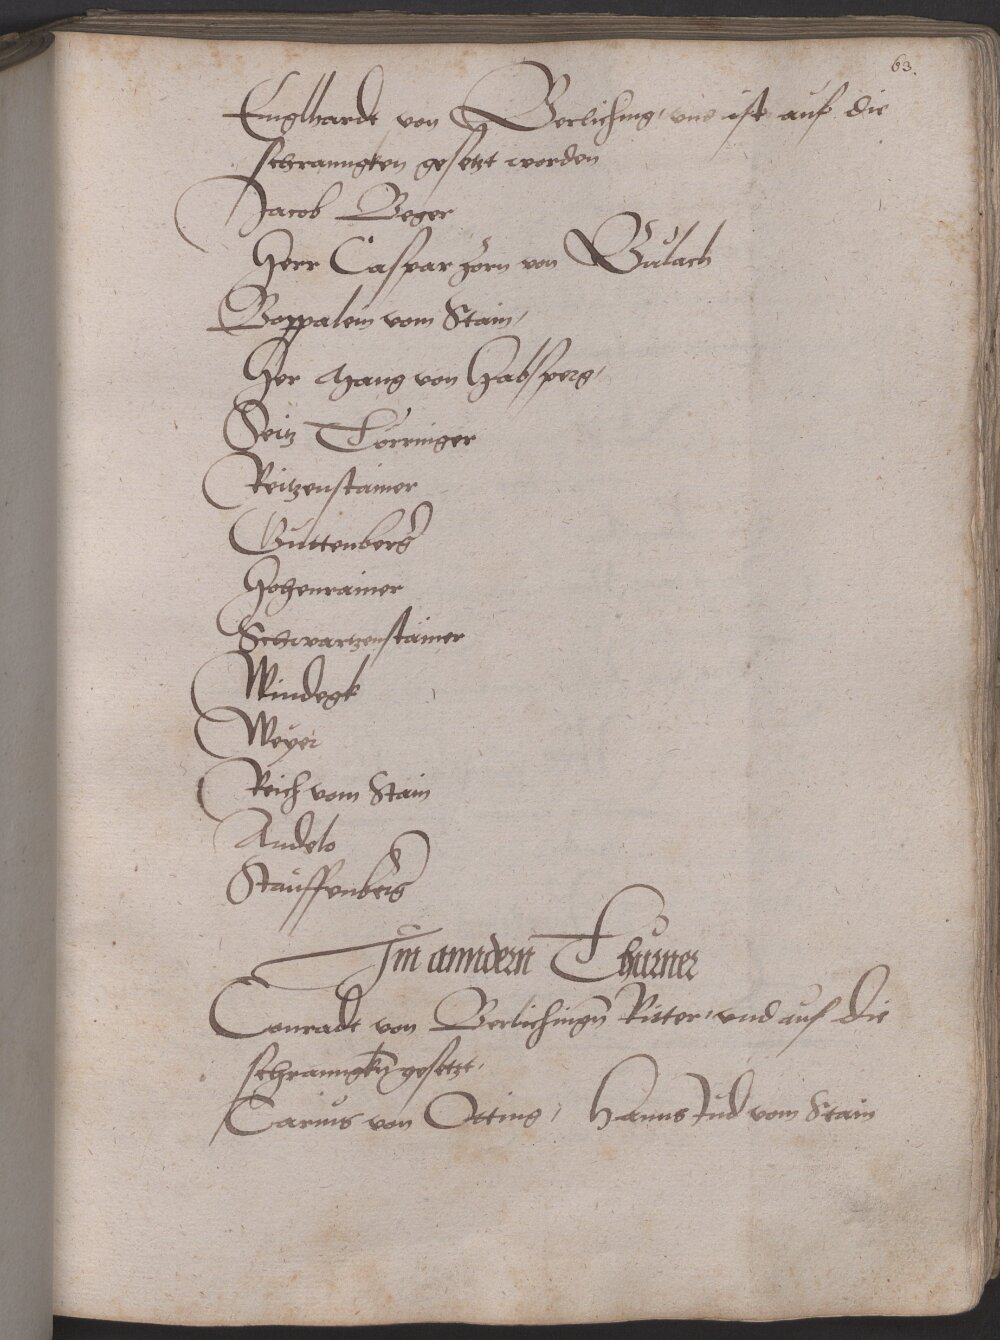 63.
Englhardt von Berliching, und ist auf die
schranngken gesetzt worden
Jacob Beger
Herr Caspar Zorn von Bulach
Boppalein vom Stain,
Her Hang von Habsperg,
Seitz Törringer
Reitzenstainer
Guttenberg
Hohenrainer
Schwartzenstainer
Windegk
Weyer
Reich vom Stain
Andelo
Stauffenberg
Im anndern Thurner
Conradt von Berlichingn Ritter, und auf die
schranngkn gesetzt,
Carius von Otting, Hanns Jud vom Stain